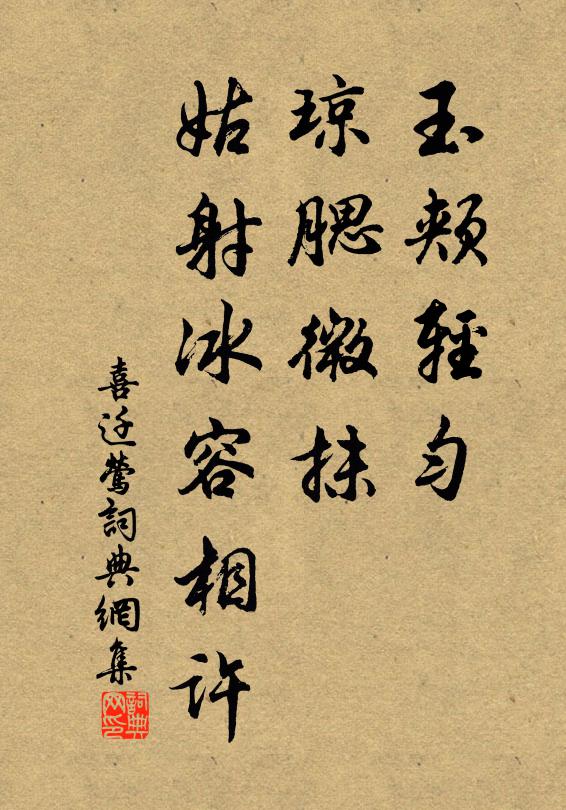 玉頰輕勻
瓊腮微抹
姑射冰容相許
喜迁鶯詞典網集
詞典网印